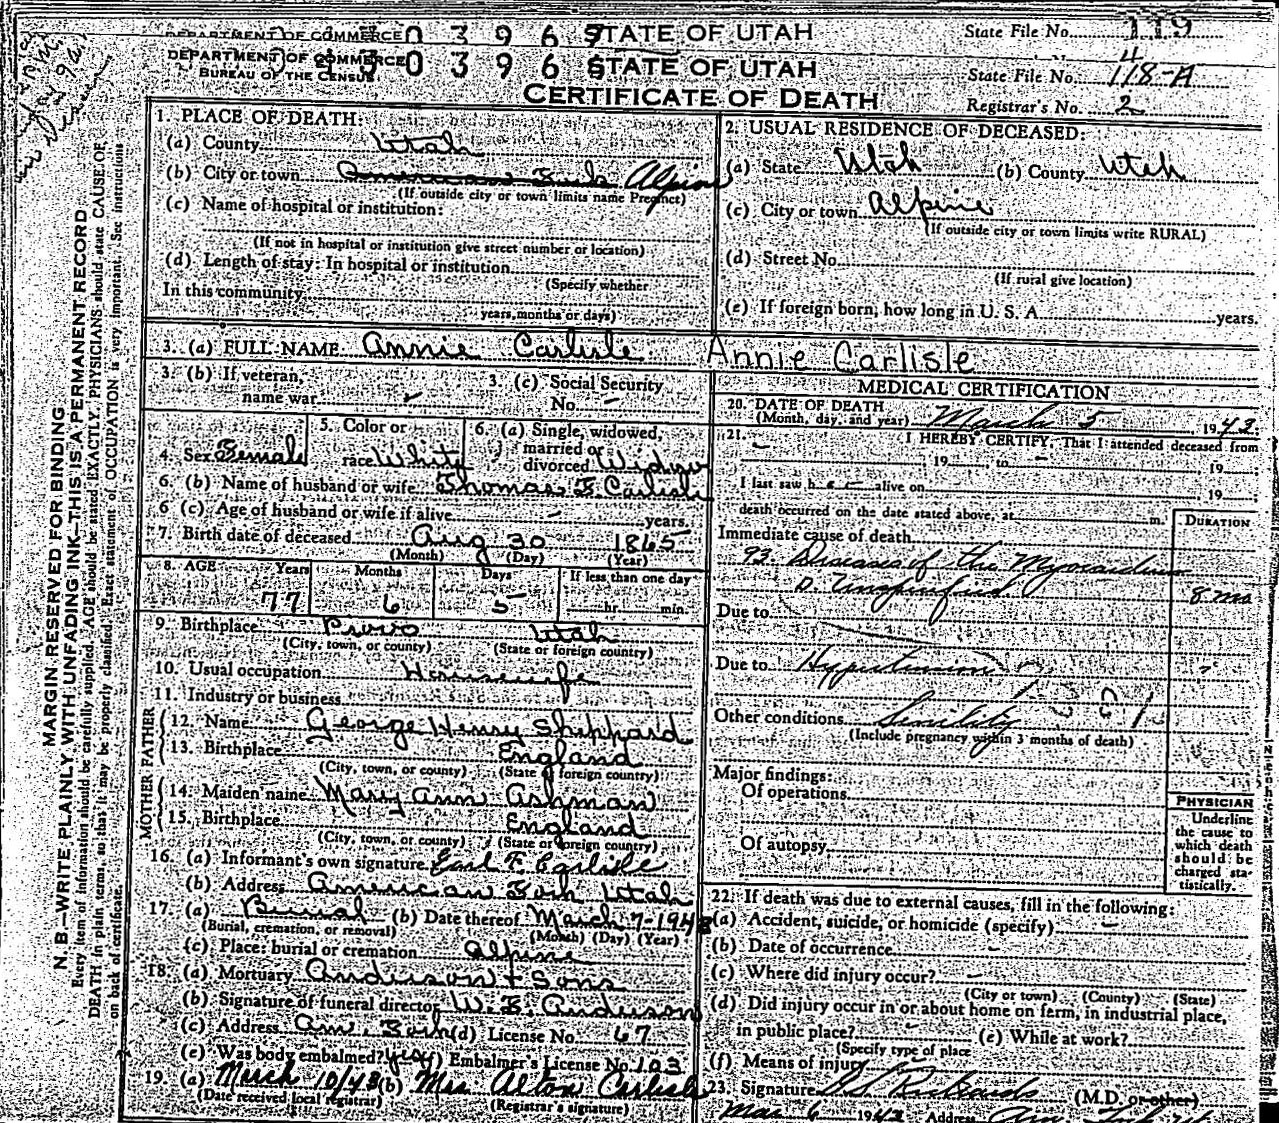 DEPARTMENT OF COMMERCE 0 3 9 6 STATE OF UTAH State File No. 119
DEPARTMENT OF COMMERCE 3 0 3 9 6 STATE OF UTAH State File No. 118-A
BUREAU OF THE CENSUS
CERTIFICATE OF DEATH Registrar's No. 2
MARGIN RESERVED FOR BINDING
N. B.—WRITE PLAINLY, WITH UNFADING INK—THIS IS A PERMANENT RECORD
Every item of information should be carefully supplied. AGE should be stated EXACTLY. PHYSICIANS should state CAUSE OF
DEATH in plain terms, so that it may be properly classified. Exact statement of OCCUPATION is very important. See instructions
on back of certificate.
1. PLACE OF DEATH:
(a) County Utah
(b) City or town American Fork Alpine
(If outside city or town limits name Precinct)
(c) Name of hospital or institution:
(If not in hospital or institution give street number or location)
(d) Length of stay: In hospital or institution
(Specify whether
In this community
years, months or days)
2. USUAL RESIDENCE OF DECEASED:
(a) State Utah (b) County Utah
(c) City or town Alpine
(If outside city or town limits write RURAL)
(d) Street No.
(If rural give location)
(e) If foreign born, how long in U. S. A. years.
3. (a) FULL NAME Annie Carlisle Annie Carlisle
3. (b) If veteran, name war - 3. (c) Social Security No. -
4. Sex Female 5. Color or race White 6. (a) Single, widowed, married or divorced Widow
6. (b) Name of husband or wife Thomas F. Carlisle
6 (c) Age of husband or wife if alive - years.
7. Birth date of deceased Aug 30 1865
(Month) (Day) (Year)
8. AGE Years Months Days If less than one day
77 6 5 hr. min.
9. Birthplace Provo Utah
(City, town, or county) (State or foreign country)
10. Usual occupation Housewife
11. Industry or business
FATHER
12. Name George Henry Shippard
13. Birthplace England
(City, town, or county) (State of foreign country)
MOTHER
14. Maiden name Mary Ann Ashman
15. Birthplace England
(City, town, or county) (State or foreign country)
16. (a) Informant's own signature Earl F. Carlisle
(b) Address American Fork Utah
17. (a) Burial (b) Date thereof March 7-1943
(Burial, cremation, or removal) (Month) (Day) (Year)
(c) Place: burial or cremation Alpine
18. (a) Mortuary Anderson & Sons
(b) Signature of funeral director W. E. Anderson
(c) Address Am. Fork (d) License No. 67
(e) Was body embalmed? yes (f) Embalmer's License No. 103
19. (a) March 10/43 (b) Mrs Alton Carlisle
(Date received local registrar) (Registrar's signature)
MEDICAL CERTIFICATION
20. DATE OF DEATH
(Month, day, and year) March 5, 1943.
21. I HEREBY CERTIFY, That I attended deceased from
- , 19 , to - 19 ;
I last saw her alive on , 19 ;
death occurred on the date stated above, at m. DURATION
Immediate cause of death
93. Diseases of the Myocardium
D. Unspecified 8 mo
Due to
Due to Hypertension
Other conditions Senility
(Include pregnancy within 3 months of death)
Major findings:
Of operations
Of autopsy
PHYSICIAN
Underline
the cause to
which death
should be
charged sta-
tistically.
22. If death was due to external causes, fill in the following:
(a) Accident, suicide, or homicide (specify) -
(b) Date of occurrence -
(c) Where did injury occur? -
(City or town) (County) (State)
(d) Did injury occur in or about home on farm, in industrial place,
in public place? - (e) While at work?
(Specify type of place
(f) Means of injury
23. Signature Richards (M.D. or other)
Mar 6 1943 Address Am. Fork Ut